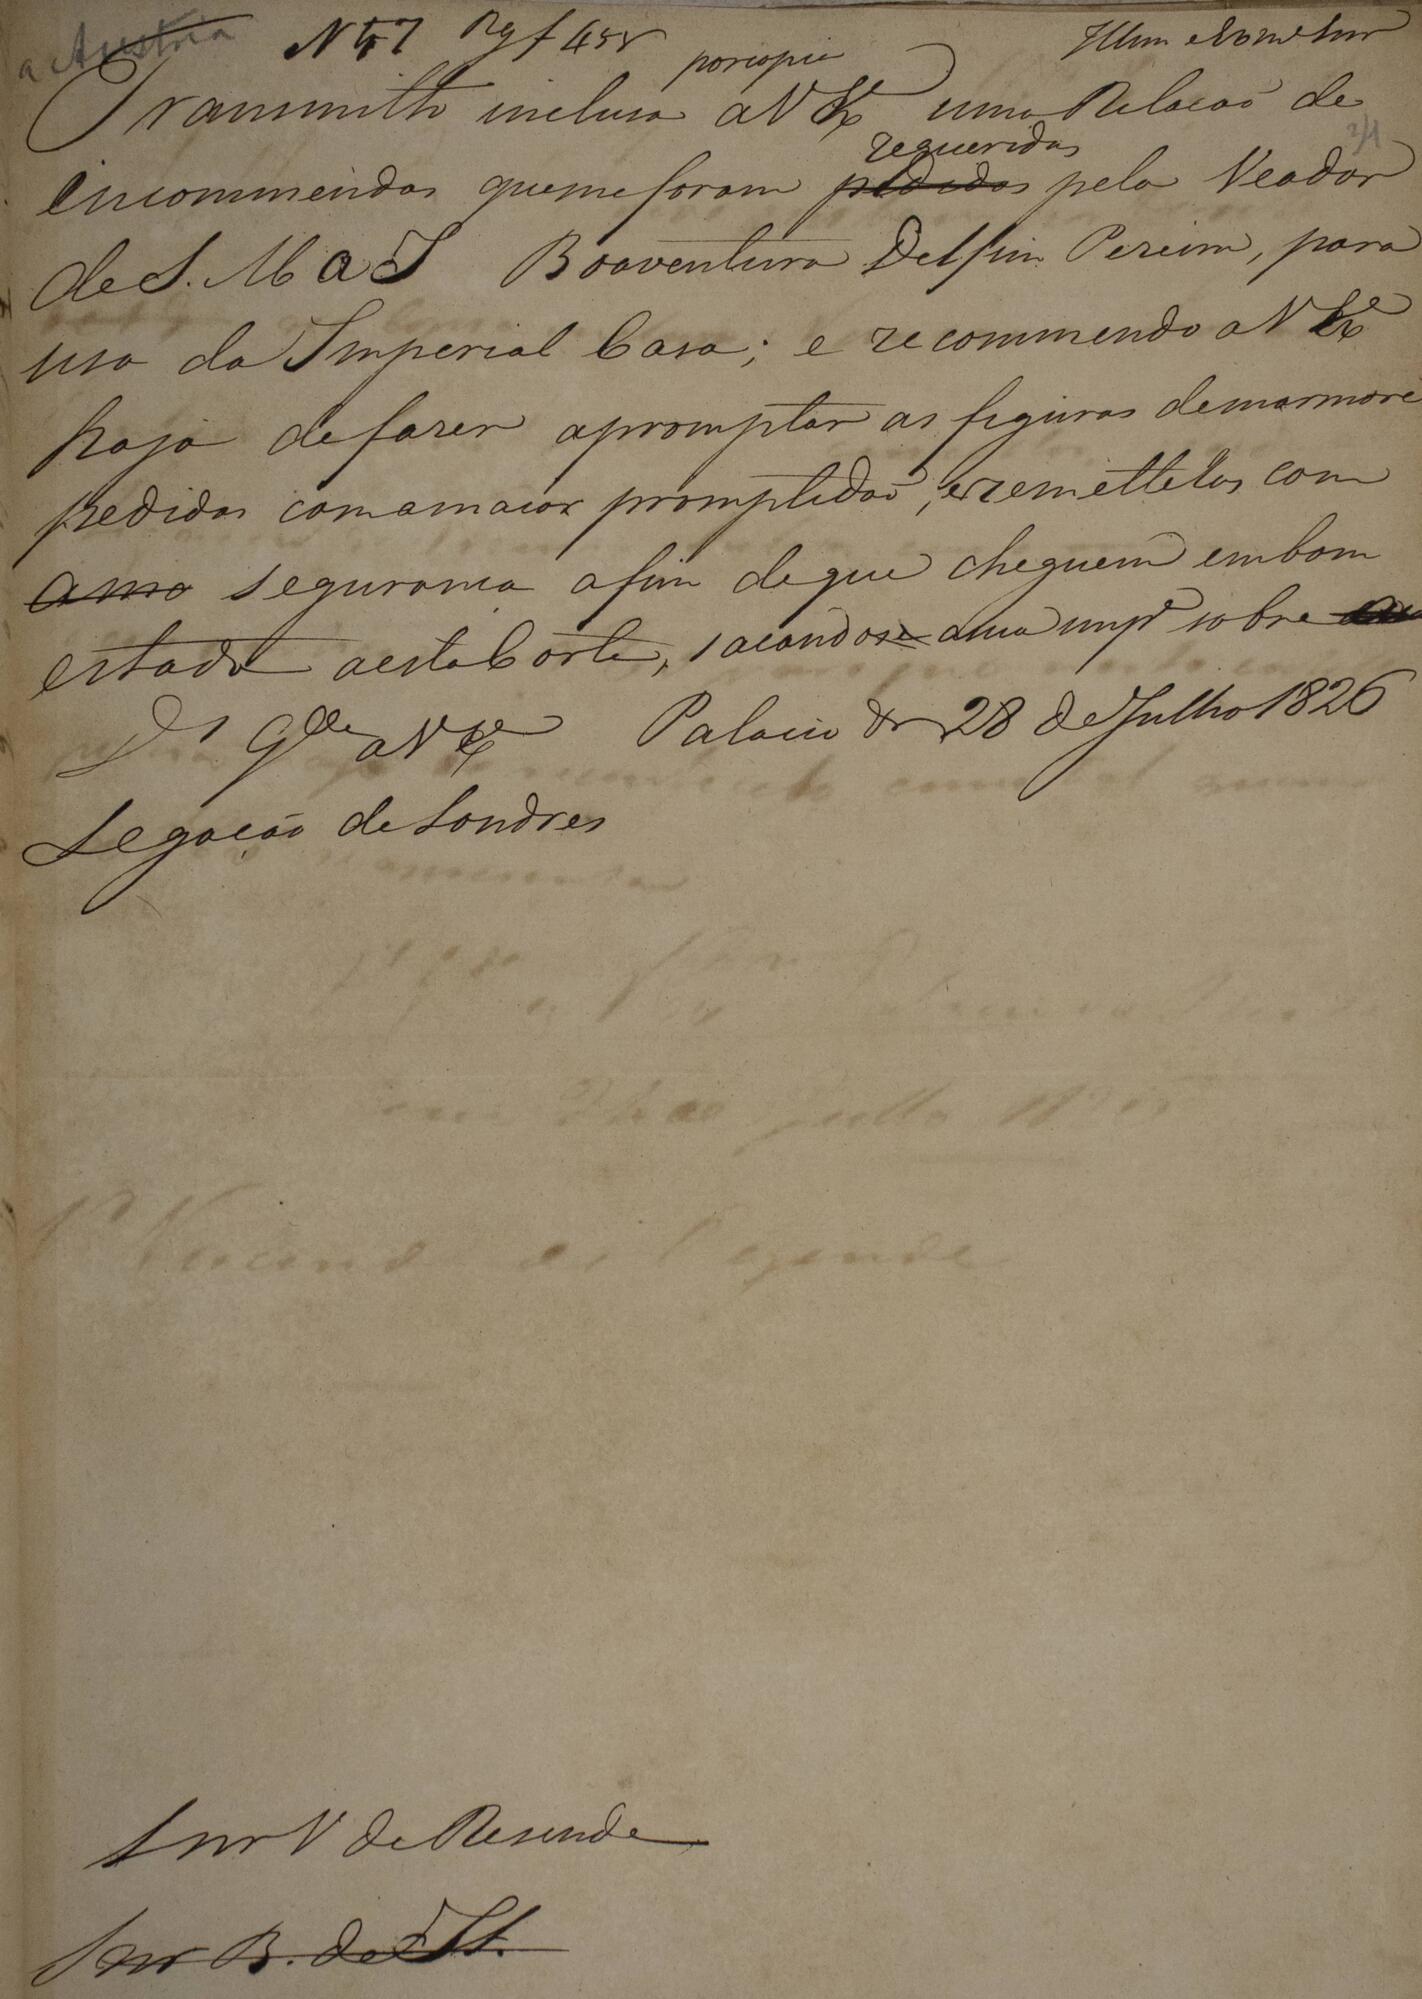 a Austria Nº 7 Illm e Exmo Snr
por copia
Transmitto inclusa a V Exª uma Relacaõ de
requeridas
encommendas que me foram pedidas pelo Veador
de S. M a I Boaventura Delfim Pereira, para
uso da Imperial Casa; e recommendo a V Exª
haja de fazer apromptar as figuras de marmore
pedidas com a maior promptidaõ, e remettelas com
seguranca afim de que cheguem em bom
estado a esta Corte, sacando a sua impª sobre
Ds Gde a V Exª Palacio 28 de Julho 1826
Legacão de Londres
Snr V de Resende
Snr B. de It.